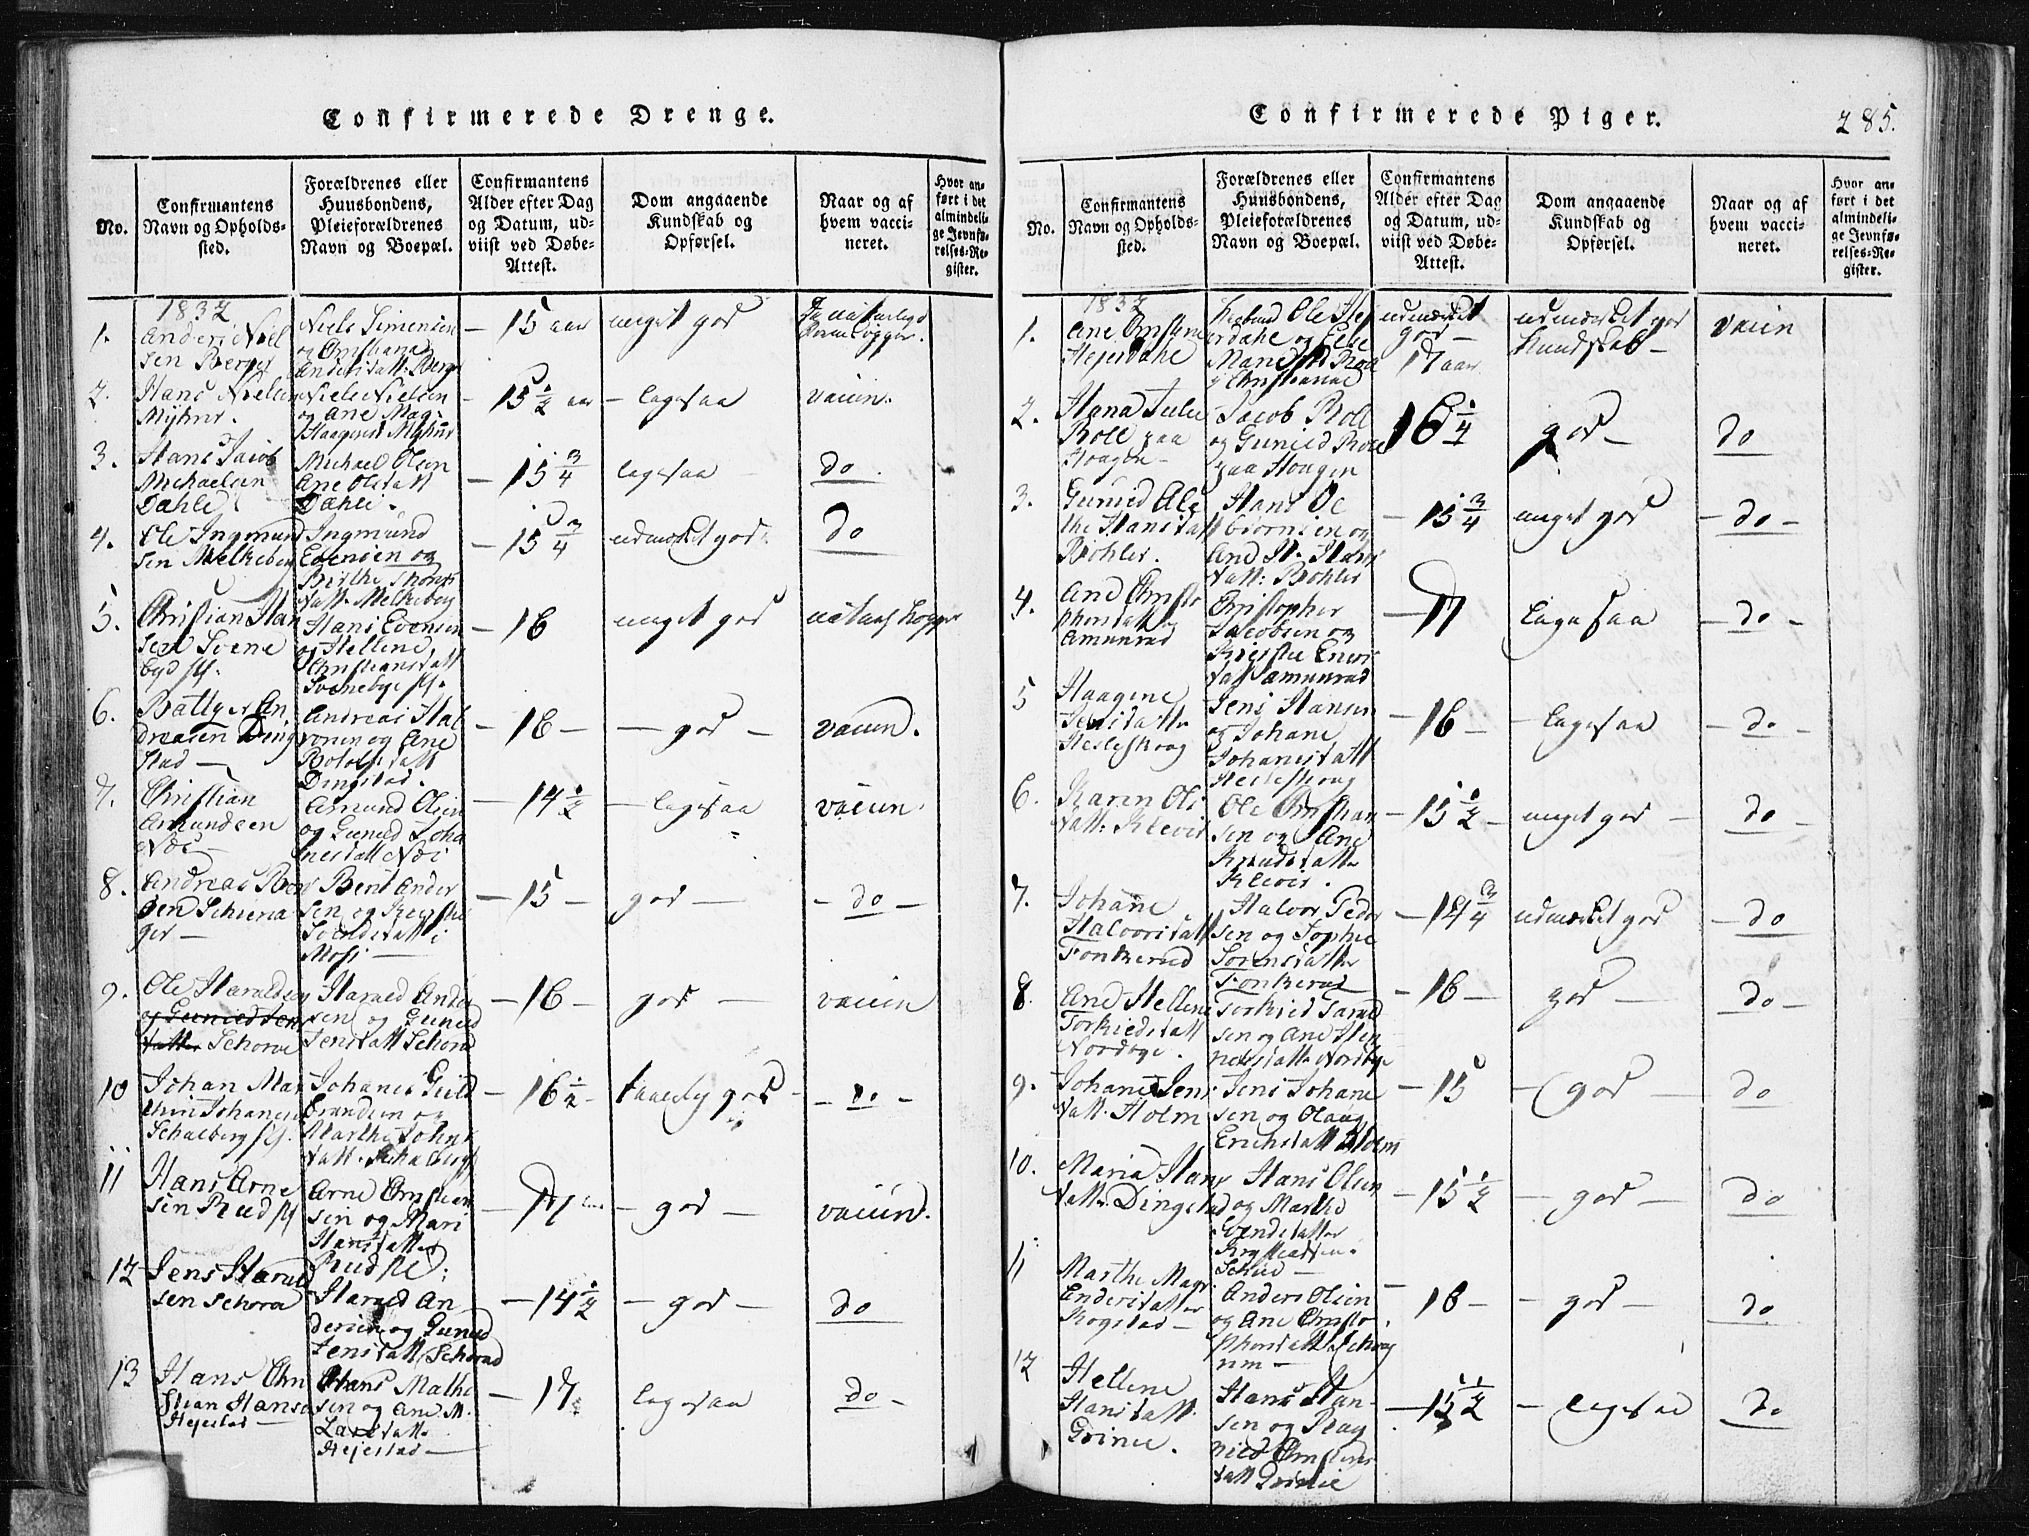 Confirmerede Drenge.
No.
Confirmantens
Navn og Opholds-
sted.
Forældrenes eller
Huusbondens,
Pleieforældrenes
Navn og Boepæl.
Confirmantens
Alder efter Dag
og Datum, ud-
viist ved Døbe-
Attest.
Dom angaaende
Kundskab og
Opførsel.
Naar og af
hvem vacci-
neret.
Hvor an-
ført i det
almindeli-
ge Jevnfø-
relses-Re-
gister.
1832
1.
Anders Niel
sen Berger
Niels Simensen
og Christiana
Andersdatt. Berger
15 aar
meget god
2.
Hans Nielsen
Myhrer.
Niels Nielsen
og Ane Mag:
Haagens Myhrer
15 1/2 aar
ligesaa
vaccin.
3.
Hans Jacob
Michaelsen
Dæhlie
Michael Olsen
Ane Olsdatt
Dæhlie.
15 3/4
ligesaa
do.
4.
Ole Ingmund
sen Melkeberg
Ingmund
Evensen og
Birthe Thores
datt. Melkeberg
15 3/4
udmærket god
do
5.
Christian Han
sen Svene
byd
Hans Evensen
og Hellene
Christiansdatt
Svenebye
16
meget god
6.
An
dreasen Ding
stad
Andreas Hal
vorsen og Ane
Dingstad.
16
god
vaccin.
7.
Christian
Amundsen
Næs
Amund Olsen
og Gunild Joha
nesdatt Næs
14 1/2
ligesaa
vaccin.
8.
Andreas Bent
sen Schiena
ger
Bent Ander
sen og Kirstie
Svendsdatt i
Moss
15
god
do
9.
Ole Haraldsen
Schorve
Harald Ander
sen og Gunild
Jensdatt Schorve
16
god
vaccin
10
Johan Mar
thin Johanes
Schalberg
Johanes Guld
brandsen og
Marthe Johns
datt. Schalberg
16 1/2
taalelig god
do
11
Hans Arne
sen Rud
Arne Christian
sen og Mari
Hansdatter
Rud
17
god
vaccin.
12
Jens Harald
sen Schorve
Harald An
dersen og Gunild
Jensdatt Schorve
14 1/2
god
do
13
Hans Chri
stian Hanse
Hejestad
Hans Mathi
sen og Ane M.
Larsdatt.
Hejestad
17
ligesaa
do
Confirmerede Piger.
285.
No.
Confirmantens
Navn og Opholds-
sted.
Forældrenes eller
Huusbondens,
Pleieforældrenes
Navn og Boepæl.
Confirmantens
Alder efter Dag
og Datum, ud-
viist ved Døbe-
Attest.
Dom angaaende
Kundskab og
Opførsel.
Naar og af
hvem vacci-
neret.
Hvor an-
ført i det
almindeli-
ge Jevnfø-
relses-Re-
gister.
1832
1.
Ane Christine
Hejerdahl
Ole Hej
erdahl og Else
Marie
udmærket
god
17 aar
udmærket god
Kundskab
vaccin
2.
Hana Julie
Roll paa
Haagen
Jacob Roll
og Gunild Roll
paa Haagen
16 1/4
god
do
3.
Gunild Ale
the Hansdatt
Böhler.
Hans
biörnsen og
Ane Hans
datt: Böhler
15 3/4
meget god
do
4.
Ane Christo
phersdatt
Amunrud
Christopher
Jacobsen og
Kirstie Eners
dat Amunrud
17
ligesaa
do
5
Haagine
Jensdatter
Helleskoug
Jens Hansen
og Johane
Johanesdatt
Helleskoug
16
ligesaa
do
6.
Karen Ols
datt: Klevis
Ole Christian
sen og Ane
Knudsdatter
Klevis.
15 1/2
meget god
do
7.
Johane
Halvorsdatt
Fonkerud
Halvor Peder
sen og Sophie
Sorensdatter
Fonkerud
14 3/4
udmærket god
do
8.
Ane Hellene
Torkildsdatt
Nordbye.
Torkild Harald
sen og Ane Hen
Nordbye
16
god
do
9.
Johane Jens
datt. Holm
Jens Johane
sen og Olaug
Erichsdatt Holm
15
god
do
10.
Maria Hans
datt. Dingstad
Hans Olsen
og Marthe
Svendsdatter
15 1/2
god
do
11
Marthe Magr.
Andersdatter
Kogstad
Anders Olsen
og Ane Christo
phersdatt
16
god
do
12
Hellene
Hansdatt.
Grinie.
Hans Han
sen og Rag
nild Christens
datt Grinie
15 1/2
ligesaa
do